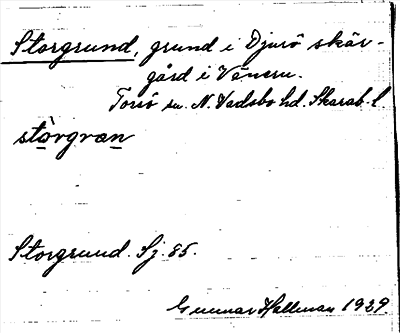 Storgrund, grund i Djurö skär-
gård i Vänern.
Torsö sn. N. Vadsbo hd. Skarab. l
stòrgran
Storgrund. Sj. 85.
Gunnar Hallman 1929